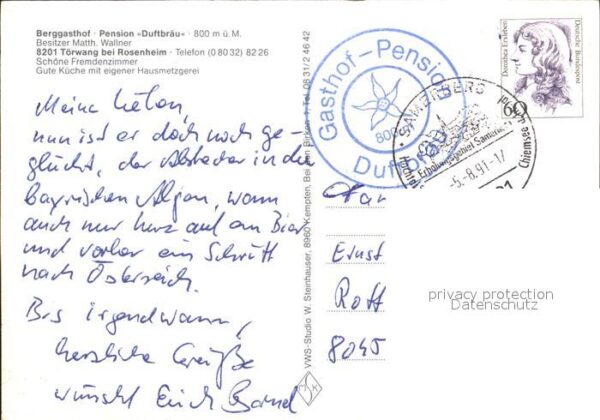 Berggasthof · Pension »Duftbräu« · 800 m ü. M.
Besitzer Math. Wallner
8201 Törwang bei Rosenheim · Telefon (0 80 32) 82 26
Schöne Fremdenzimmer
Gute Küche mit eigener Hausmetzgerei
Meine
nun ist er doch noch ge-
glückt, der Abstecher in die
Bayrischen Alpen, wenn
auch nur kurz auf ein Bier
und vorher ein Schritt
nach Österreich.
Bis irgendwann,
herzliche Grüße
wünscht Euch Bernd
VWS-Studio W. Steinhauser, 8960 Kempten, Bei den Birken 1, Tel. 08 31/2 46 42
Gasthof-Pension
800
Duftbräu
SAMERBERG
Erholungsgebiet Samerberg
-5.-8.91-17
Chiemsee
Dorothea Erxleben
Deutsche Bundespost
60
Ernst
Rott
8045
privacy protection
Datenschutz